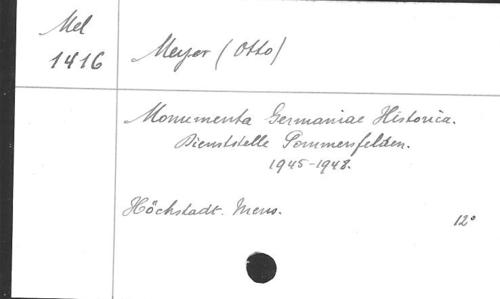 Mel
1416
Meyer (Otto)
Monumenta Germaniae Historica.
Dienststelle Pommersfelden.
1945-1948.
Höchstadt. Mens.
12°